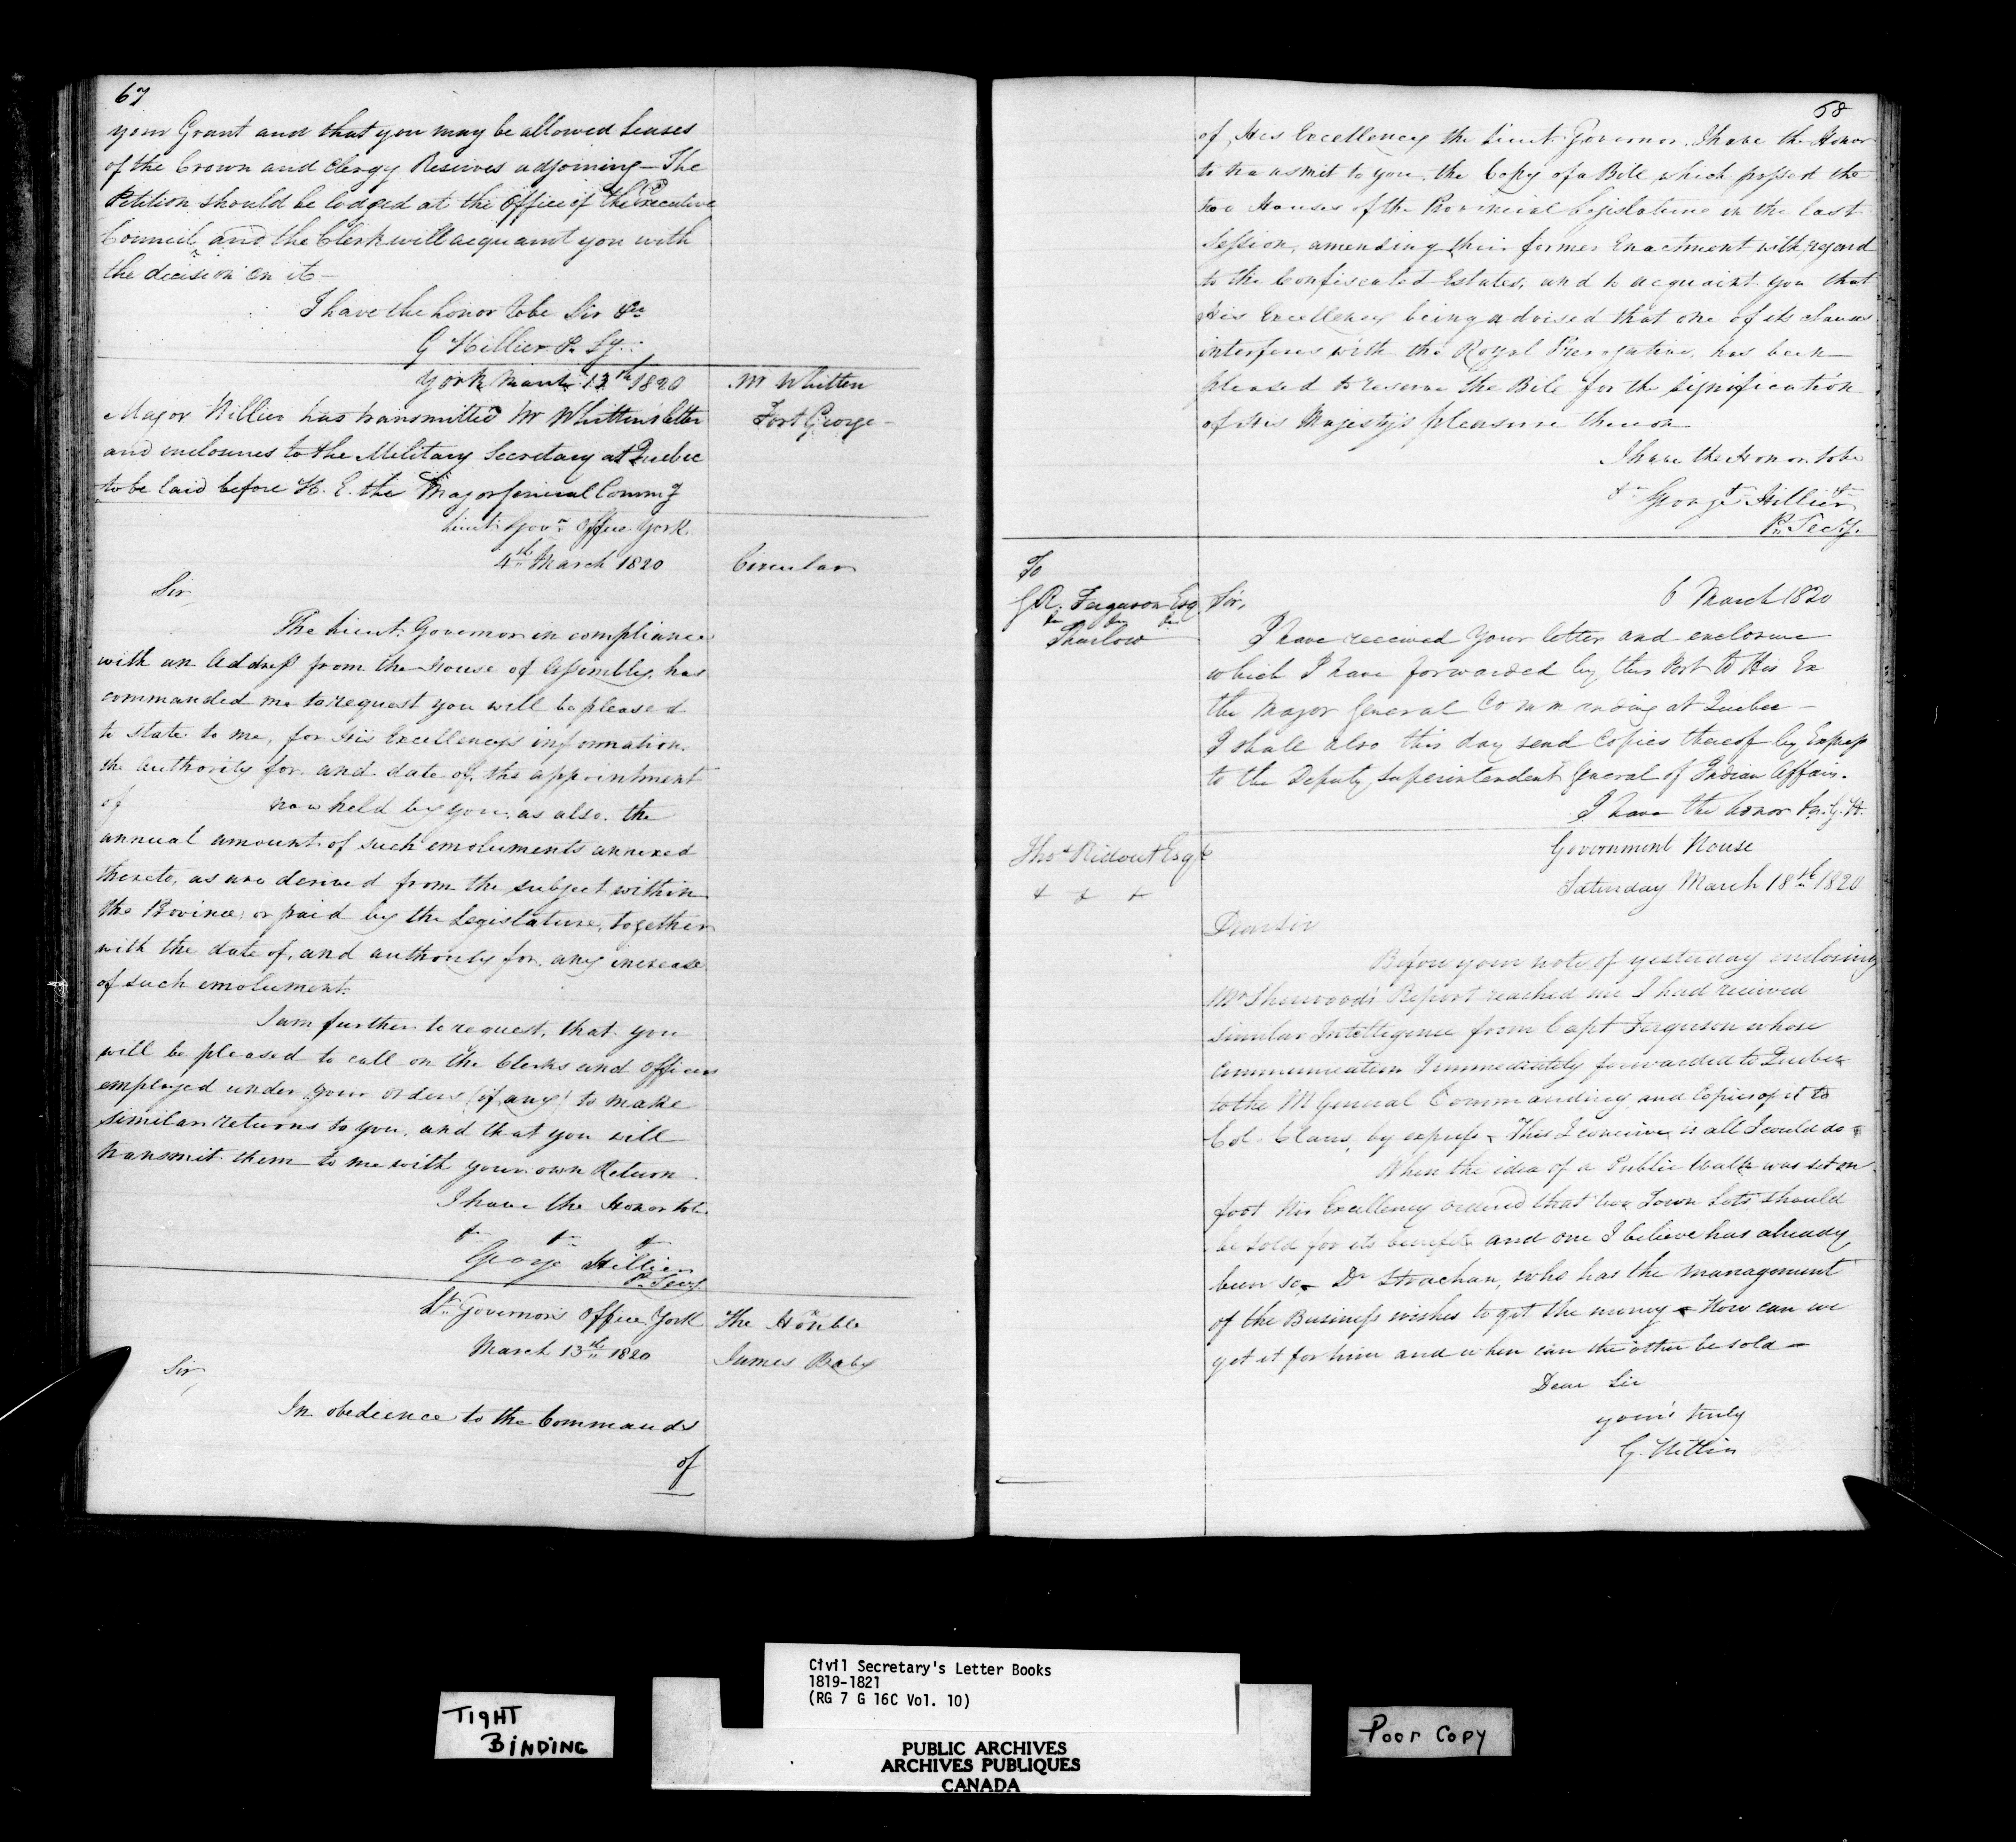 67
your Grant and that you may be allowed Leases
of the Crown and Clergy Reserves adjoining – The
Petition should be lodged at the Office of the Executive
Council and the Clerk will acquaint you with
the decision on it –
I have the honor to be Sir &c
G Hillier P. Sy.
York March 13th 1820
Mr Whitten
Fort George –
Major Hillier has transmitted Mr Whitten's letter
and enclosures to the Military Secretary at Quebec
to be laid before H. E. the Major General Comm g
Lieut: Govr Office York
4th March 1820
Circular
Sir,
The Lieut: Governor in compliance
with an Address from the House of Assembly, has
commanded me to request you will be pleased
to state to me, for His Excellency's information,
the authority for and date of, the appointment
of now held by you, as also the
annual amount of such emoluments annexed
thereto, as are derived from the subject within
the Province, or paid by the Legislature, together
with the date of, and authority for any increase
of such emolument.
I am further to request, that you
will be pleased to call on the Clerks and Officers
employed under your orders (if any) to make
similar returns to you, and that you will
transmit them to me with your own Return
I have the Honor to be
&c &c &c
George Hillier
P. Secy
Lt. Governor's Office York
March 13th 1820
The Honble
James Baby
Sir,
In obedience to the Commands
of
68
of His Excellency the Lieut: Governor I have the Honor
to transmit to you, the Copy of a Bill which passed the
two Houses of the Provincial Legislature in the last
Session, amending their former Enactment with regard
to the Confiscated Estates, and to acquaint you that
His Excellency being advised that one of its clauses
interferes with the Royal Prerogative, has been
pleased to reserve the Bill for the signification
of His Majesty's pleasure thereon
I have the Honor to be
&c &c &c
George Hillier
P. Secy.
To
G R. Ferguson Esq
&c &c &c
Thurlow
6 March 1820
Sir,
I have received your letter and enclosure
which I have forwarded by this Post to His Ex
the Major General Commanding at Quebec –
I shall also this day send Copies thereof by Express
to the Deputy Superintendent General of Indian Affairs.
I have the honor &c. G. H.
Thos Ridout Esqr
+ + +
Government House
Saturday March 18th 1820
Dear Sir
Before your note of yesterday enclosing
Mr Sherwood's Report reached me I had received
similar Intelligence from Capt Ferguson whose
Communication I immediately forwarded to Quebec
to the M General Commanding and Copies of it to
Col. Claus, by express – This I conceive is all I could do –
When the idea of a Public Walk was set on
foot His Excellency ordered that two Town Lots should
be sold for its benefit and one I believe has already
been so – Dr Strachan, who has the management
of the Business wishes to get the money – How can we
get it for him and when can the other be sold –
Dear Sir
your's truly
G. Hillier
TIGHT
BINDING
Civil Secretary's Letter Books
1819-1821
(RG 7 G 16C Vol. 10)
PUBLIC ARCHIVES
ARCHIVES PUBLIQUES
CANADA
Poor Copy